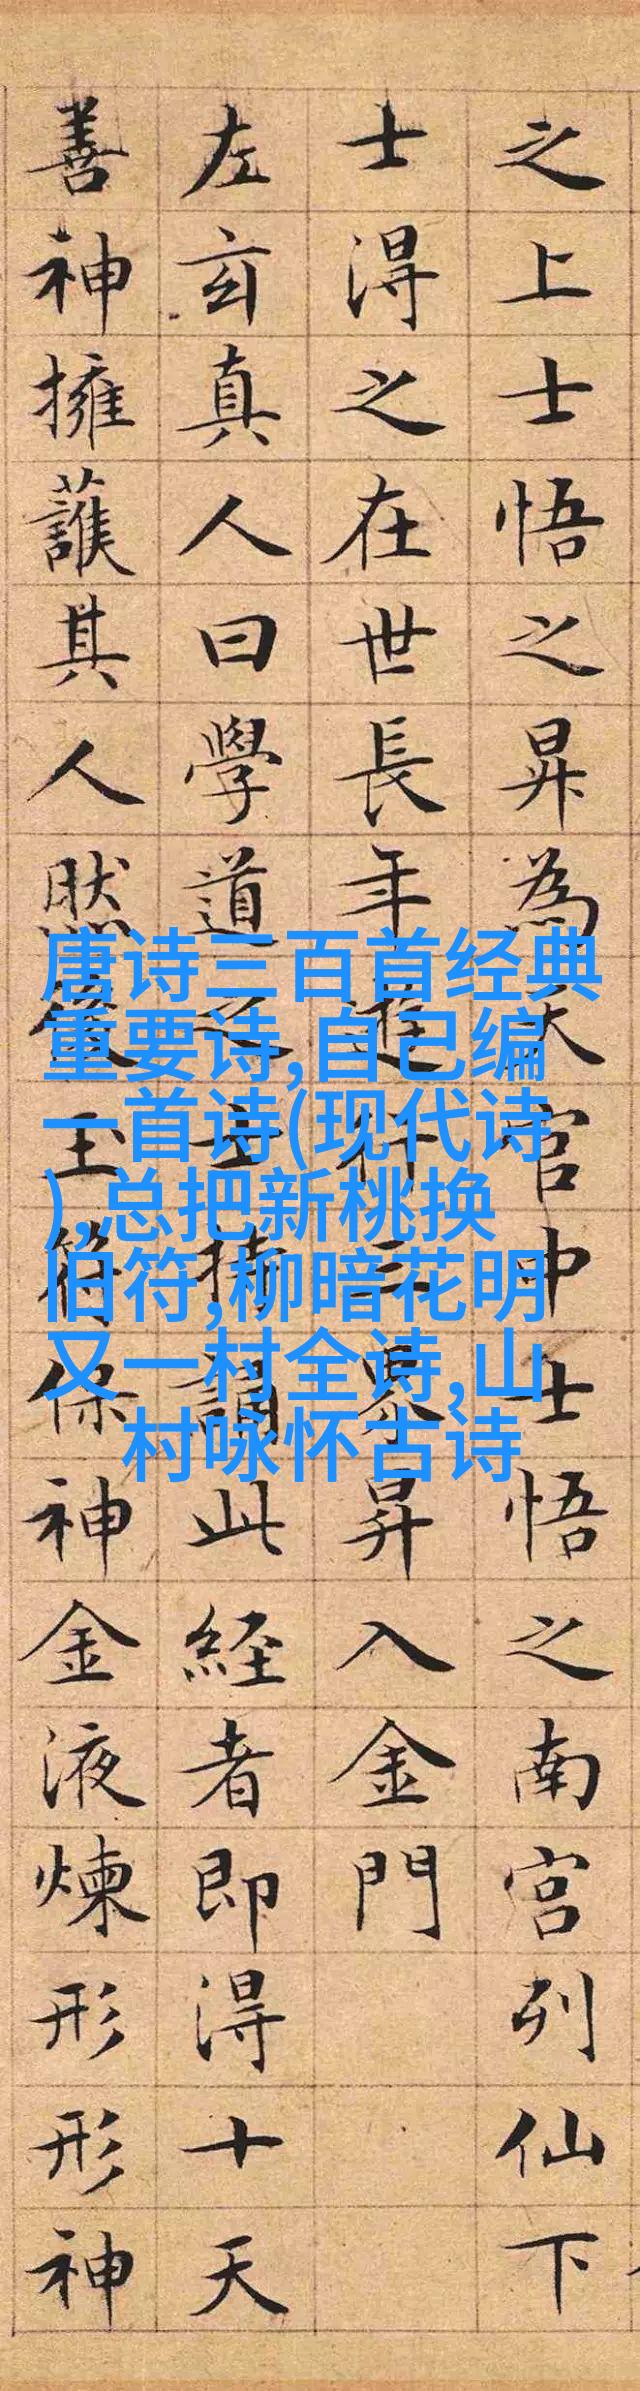 之上士悟之昇為天官中士悟之南宮列仙下
士淂之在世長年遊行三界昇入金門
左玄真人曰學道之士持誦此經者即淂十天
善神擁護其人然後玉符保神金液煉形形神
唐诗三百首经典
重要诗,自己编
一首诗(现代诗
),总把新桃换
旧符,柳暗花明
又一村全诗,山
村咏怀古诗